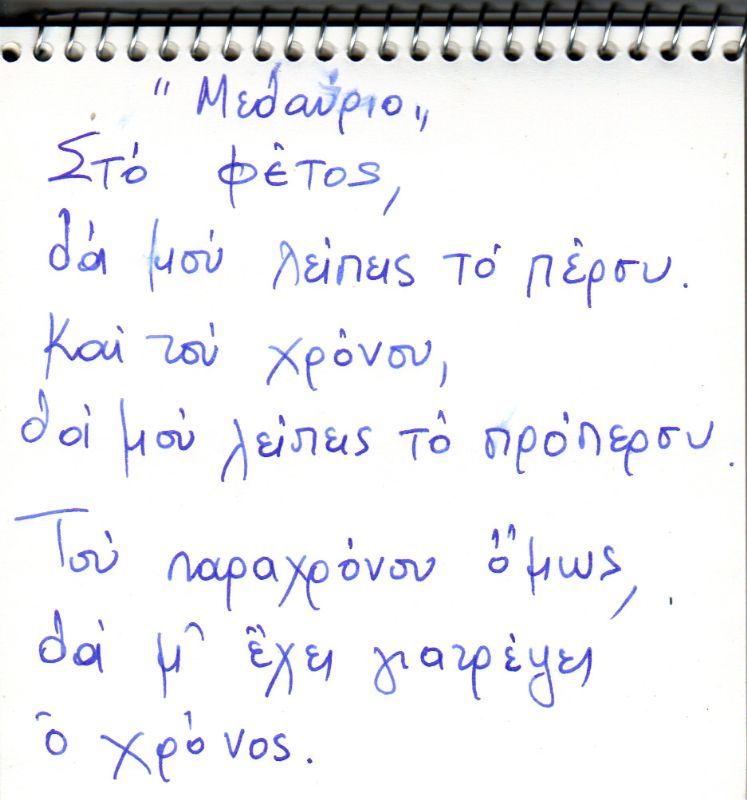 "Μεθαύριο„
Στό φέτος,
θά μού λείπεις τό πέρσυ.
Καί τού χρόνου,
θά μού λείπεις τό πρόπερσυ.
Τού παραχρόνου ὅμως,
θά μ' ἔχει γιατρέψει
ὁ χρόνος.